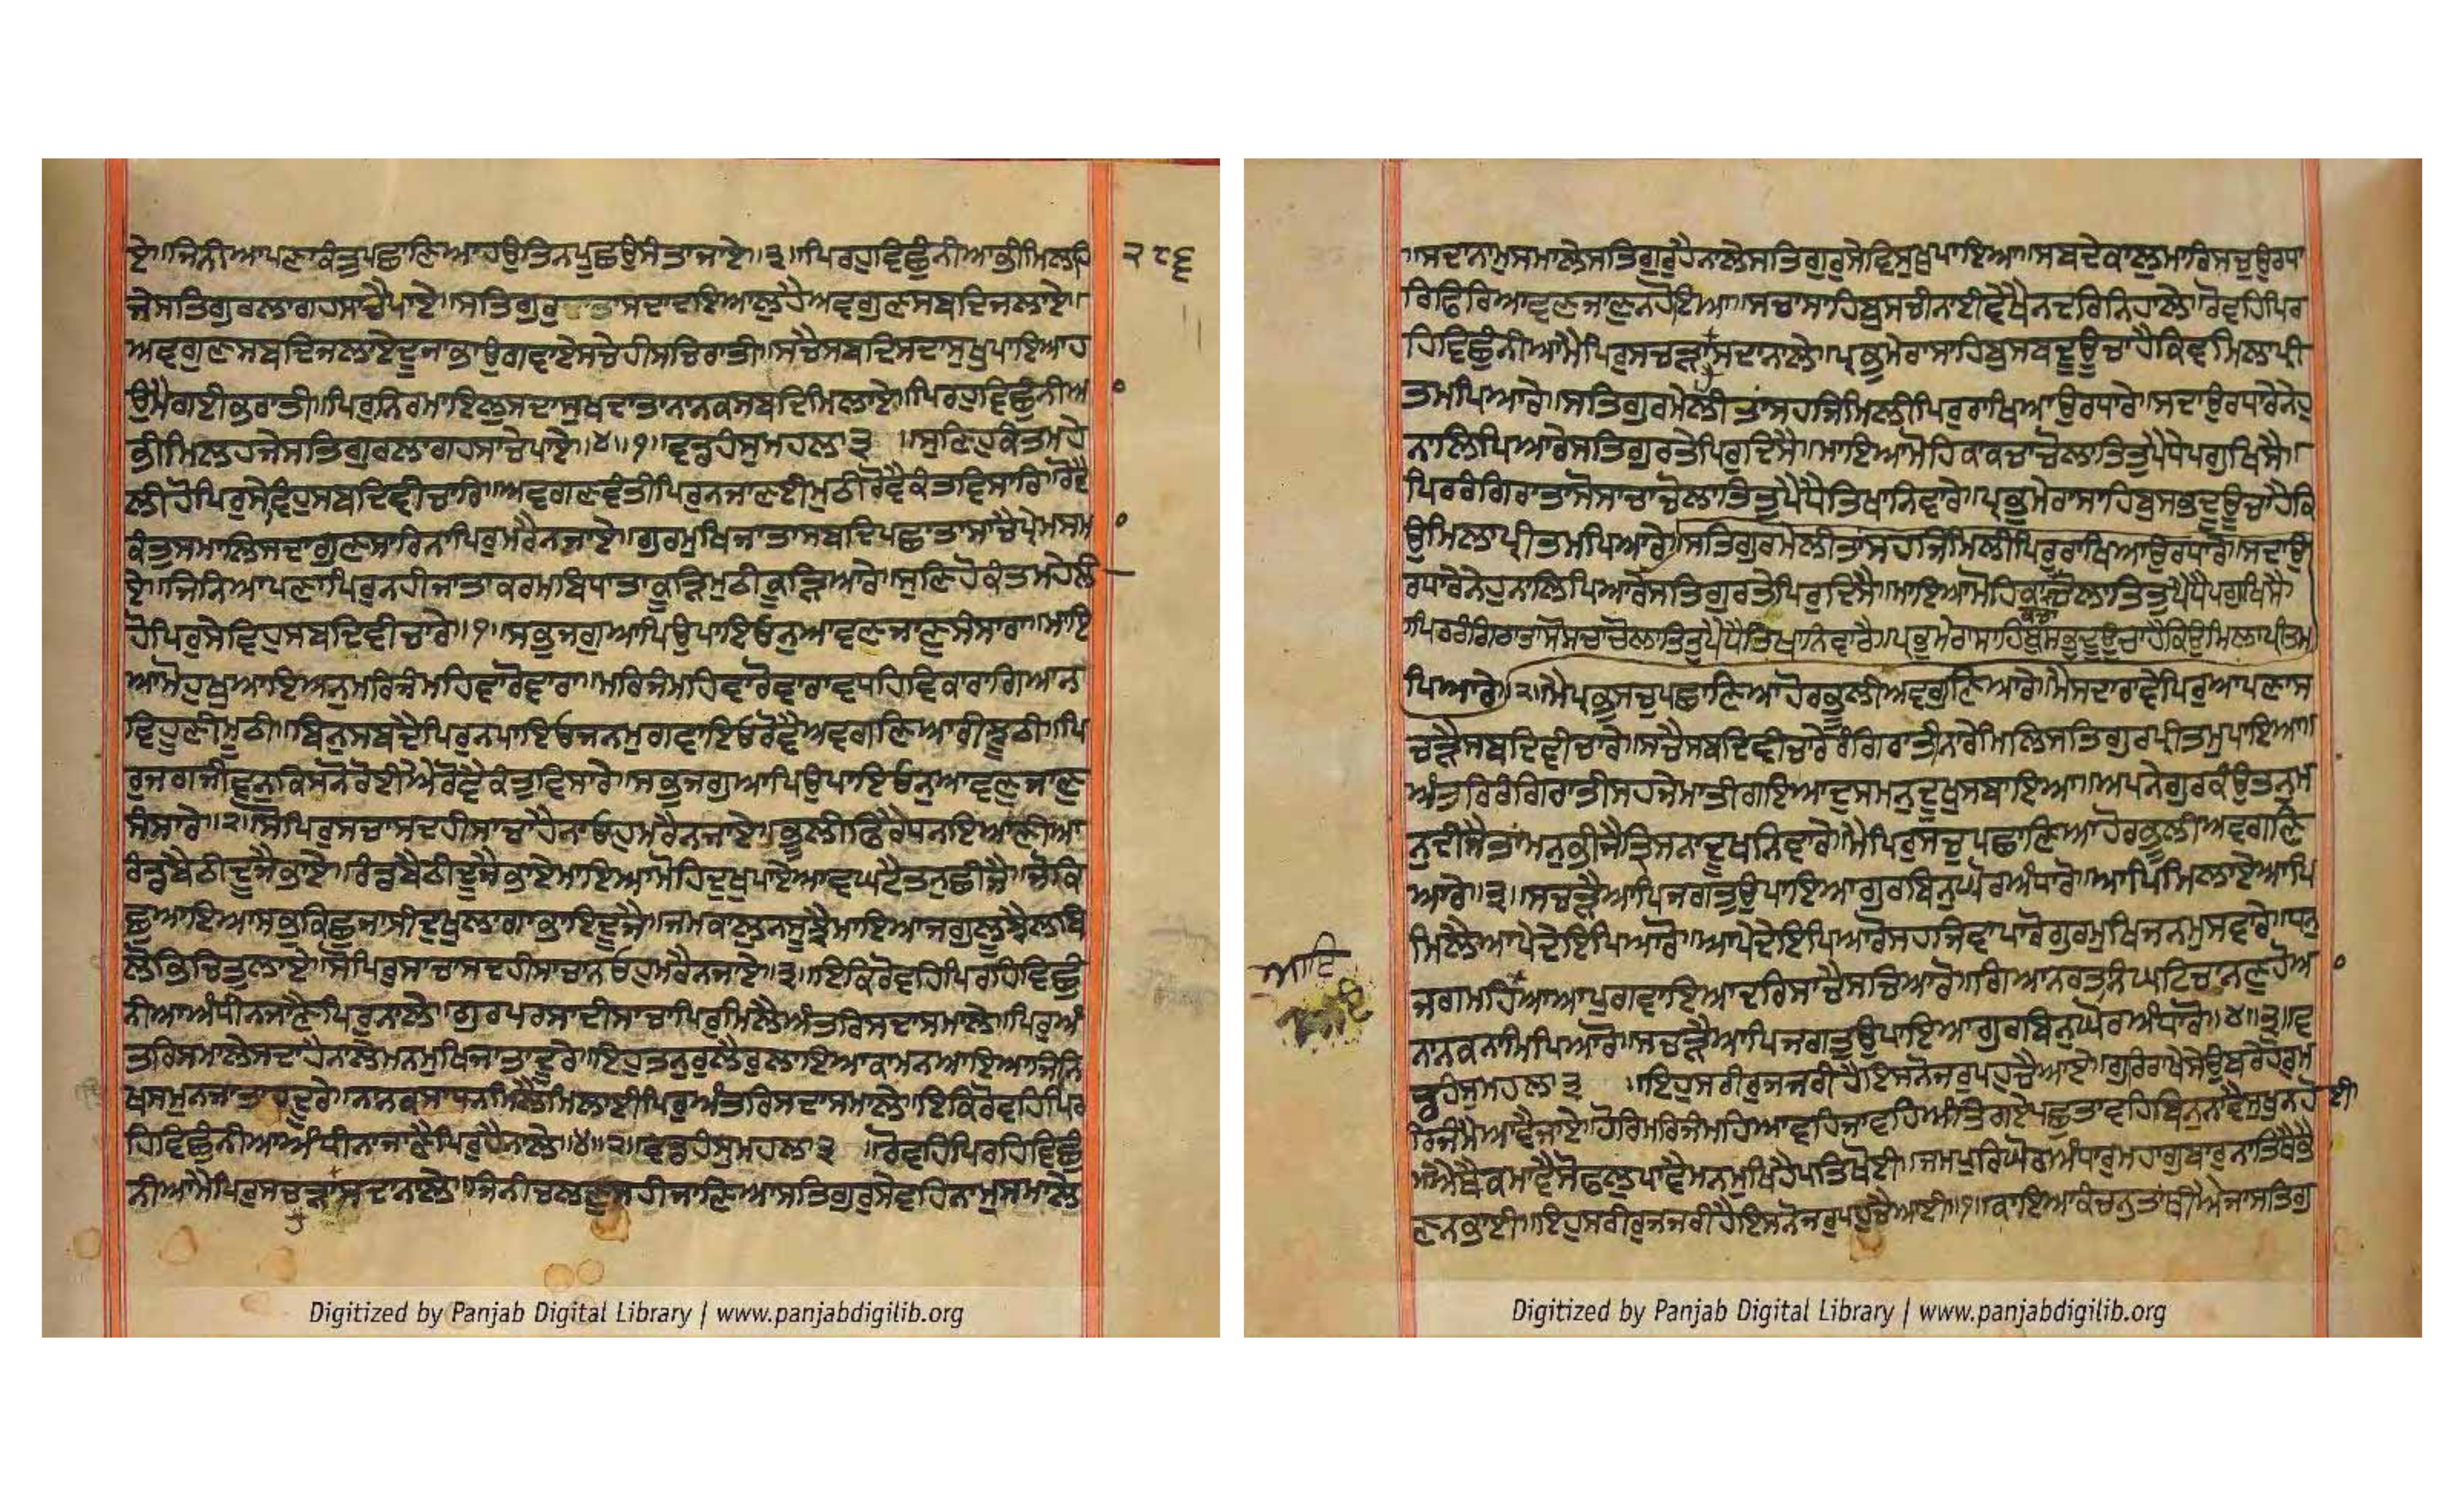 ਏ॥ਜਿਨੀਆਪਣਾਕੰਤੁਪਛਾਣਿਆਹਉਤਿਨਪੁਛਉਸੰਤਾਜਾਏ॥੩॥ਪਿਰਹੁਵਿਛੁੰਨੀਆਭੀਮਿਲਹਿ
੨੮੬
ਜੇਸਤਿਗੁਰਲਾਗਹਸਾਚੈਪਾਏ॥ਸਤਿਗੁਰੁਦਾਤਾਸਦਾਦਇਆਲੁਹੈਅਵਗੁਣਸਬਦਿਜਲਾਏ॥
ਅਵਗੁਣਸਬਦਿਜਲਾਏਦੂਜਾਭਾਉਗਵਾਏਸਚੇਹੀਸਚਿਰਾਤੀ॥ਸਚੈਸਬਦਿਸਦਾਸੁਖੁਪਾਇਆਹ
ਉਮੈਗਈਭਰਾਤੀ॥ਪਿਰੁਨਿਰਮਾਇਲੁਸਦਾਸੁਖਦਾਤਾਨਾਨਕਸਬਦਿਮਿਲਾਏ॥ਪਿਰਹੁਵਿਛੁੰਨੀਅ
ਭੀਮਿਲਹਜੇਸਤਿਗੁਰਲਾਗਹਸਾਚੇਪਾਏ॥੪॥੧॥ਵਡਹੰਸੁਮਹਲਾ੩ ॥ਸੁਣਿਹੁਕੰਤਮਹੇ
ਲੀਹੋਪਿਰੁਸੇਵਿਹੁਸਬਦਿਵੀਚਾਰਿ॥ਅਵਗਣਵੰਤੀਪਿਰੁਨਜਾਣਈਮੁਠੀਰੋਵੈਕੰਤਵਿਸਾਰਿ॥ਰੋਵੈ
ਕੰਤੁਸਮਾਲਿਸਦਾਗੁਣਸਾਰਿਨਾਪਿਰੁਮਰੈਨਜਾਏ॥ਗੁਰਮੁਖਿਜਾਤਾਸਬਦਿਪਛਾਤਾਸਾਚੈਪ੍ਰੇਮਸਮ
ਏ॥ਜਿਨਿਆਪਣਾਪਿਰੁਨਹੀਜਾਤਾਕਰਮਬਿਧਾਤਾਕੂੜਿਮੁਠੀਕੂੜਿਆਰੇ॥ਸੁਣਿਹੋਕੰਤਮਹੇਲੀ
ਹੋਪਿਰੁਸੇਵਿਹੁਸਬਦਿਵੀਚਾਰੇ॥੧॥ਸਭੁਜਗੁਆਪਿਉਪਾਇਓਨੁਆਵਣਜਾਣੁਸੰਸਾਰਾ॥ਮਾਇ
ਆਮੋਹੁਖੁਆਇਅਨੁਮਰਿਜੰਮਹਿਵਾਰੋਵਾਰਾ॥ਮਰਿਜੰਮਹਿਵਾਰੋਵਾਰਾਵਧਹਿਵਿਕਾਰਾਗਿਆਨ
ਵਿਹੂਣੀਮੂਠੀ॥ਬਿਨੁਸਬਦੈਪਿਰੁਨਪਾਇਓਜਨਮੁਗਵਾਇਓਰੋਵੈਅਵਗਣਿਆਰੀਝੂਠੀ॥ਪਿ
ਰੁਜਗਜੀਵਨੁਕਿਸਨੋਰੋਈਐਰੋਵੈਕੰਤੁਵਿਸਾਰੇ॥ਸਭੁਜਗੁਆਪਿਉਪਾਇਓਨੁਆਵਣੁਜਾਣੁ
ਸੰਸਾਰੇ॥੨॥ਸੋਪਿਰੁਸਚਾਸਦਹੀਸਾਚਾਹੈਨਾਓਹੁਮਰੈਨਜਾਏ॥ਭੂਲੀਫਿਰੈਧਨਇਆਣੀਆ
ਰੰਡਬੈਠੀਦੂਜੈਭਾਏ॥ਰੰਡਬੈਠੀਦੂਜੈਭਾਏਮਾਇਆਮੋਹਿਦੁਖੁਪਾਏਆਵਘਟੈਤਨੁਛੀਜੈ॥ਜੋਕਿ
ਛੁਆਇਆਸਭੁਕਿਛੁਜਾਸੀਦੁਖੁਲਾਗਾਭਾਇਦੂਜੈ॥ਜਮਕਾਲੁਨਸੂਝੈਮਾਇਆਜਗੁਲੂਝੈਲਬਿ
ਲੋਭਿਚਿਤੁਲਾਏ॥ਸੋਪਿਰੁਸਾਚਾਸਦਹੀਸਾਚਾਨਓਹੁਮਰੈਨਜਾਏ॥੩॥ਇਕਿਰੋਵਹਿਪਿਰਹਿਵਿਛੁੰ
ਨੀਆਅੰਧੀਨਜਾਣੈਪਿਰੁਨਾਲੇ॥ਗੁਰਪਰਸਾਦੀਸਾਚਾਪਿਰੁਮਿਲੈਅੰਤਰਿਸਦਾਸਮਾਲੇ॥ਪਿਰੁਅੰ
ਤਰਿਸਮਾਲੇਸਦਾਹੈਨਾਲੇਮਨਮੁਖਿਜਾਤਾਦੂਰੇ॥ਇਹੁਤਨੁਰੁਲੈਰੁਲਾਇਆਕਾਮਨਆਇਆਜਿਨਿ
ਖਸਮੁਨਜਾਤਾਹਦੂਰੇ॥ਨਾਨਕਸਾਧਨਮਿਲੈਮਿਲਾਈਪਿਰੁਅੰਤਰਿਸਦਾਸਮਾਲੇ॥ਇਕਿਰੋਵਹਿਪਿਰ
ਹਿਵਿਛੁੰਨੀਆਅੰਧੀਨਾਜਾਣੈਪਿਰੁਹੈਨਾਲੇ॥੪॥੨॥ਵਡਹੰਸੁਮਹਲਾ੩ ॥ਰੋਵਹਿਪਿਰਹਿਵਿਛੁੰ
ਨੀਆਮੈਪਿਰੁਸਚੜਾਸਦਾਨਾਲੇ॥ਜਿਨੀਚਲਣੁਸਹੀਜਾਣਿਆਸਤਿਗੁਰੁਸੇਵਹਿਨਾਮੁਸਮਾਲੇ
Digitized by Panjab Digital Library | www.panjabdigilib.org
॥ਸਦਾਨਾਮੁਸਮਾਲੇਸਤਿਗੁਰੁਹੈਨਾਲੇਸਤਿਗੁਰੁਸੇਵਿਸੁਖੁਪਾਇਆ॥ਸਬਦੇਕਾਲੁਮਾਰਿਸਚੁਉਰਧਾ
ਰਿਫਿਰਿਆਵਣਜਾਣੁਨਹੋਇਆ॥ਸਚਾਸਾਹਿਬੁਸਚੀਨਾਈਵੇਖੈਨਦਰਿਨਿਹਾਲੇ॥ਰੋਵਹਿਪਿਰ
ਹਿਵਿਛੁੰਨੀਆਮੈਪਿਰੁਸਚੜਾਸਦਾਨਾਲੇ॥ਪ੍ਰਭੁਮੇਰਾਸਾਹਿਬੁਸਬਦੂਊਚਾਹੈਕਿਵਮਿਲਾਪ੍ਰੀ
ਤਮਪਿਆਰੇ॥ਸਤਿਗੁਰਮੇਲੀਤਾਂਸਹਜਿਮਿਲੀਪਿਰੁਰਾਖਿਆਉਰਧਾਰੇ॥ਸਦਾਉਰਧਾਰੇਨੇਹੁ
ਨਾਲਿਪਿਆਰੇਸਤਿਗੁਰਤੇਪਿਰੁਦਿਸੈ॥ਮਾਇਆਮੋਹਿਕਾਕਚਾਚੋਲਾਤਿਤੁਪੈਧੇਪਗੁਖਿਸੈ॥
ਪਿਰਰੰਗਿਰਾਤਾਸੋਸਾਚਾਚੋਲਾਤਿਤੁਪੈਧੈਤਿਖਾਨਿਵਾਰੇ॥ਪ੍ਰਭੁਮੇਰਾਸਾਹਿਬੁਸਭਦੂਊਚਾਹੈਕਿ
ਉਮਿਲਾਪ੍ਰੀਤਮਪਿਆਰੇ॥ਸਤਿਗੁਰਮੇਲੀਤਾਂਸਹਜਿਮਿਲੀਪਿਰੁਰਾਖਿਆਉਰਧਾਰੇ॥ਸਦਾਉ
ਰਧਾਰੇਨੇਹੁਨਾਲਿਪਿਆਰੇਸਤਿਗੁਰਤੇਪਿਰੁਦਿਸੈ॥ਮਾਇਆਮੋਹਿਕਾਚੋਲਾਤਿਤੁਪੈਧੈਪਗੁਖਿਸੈ
ਕਚਾ
ਪਿਰਰੰਗਿਰਾਤਾਸੋਸਚਾਚੋਲਾਤਿਤੁਪੈਧੈਤਿਖਾਨਿਵਾਰੈ॥ਪ੍ਰਭੁਮੇਰਾਸਾਹਿਬੁਸਭਦੂਊਚਾਹੈਕਿਉਮਿਲਾਪ੍ਰੀਤਮ
ਪਿਆਰੇ॥੨॥ਮੈਪ੍ਰਭੁਸਚੁਪਛਾਣਿਆਹੋਰਭੂਲੀਅਵਗੁਣਿਆਰੇ॥ਮੈਸਦਾਰਾਵੇਪਿਰੁਆਪਣਾਸ
ਚੜੈਸਬਦਿਵੀਚਾਰੇ॥ਸਚੈਸਬਦਿਵੀਚਾਰੇਰੰਗਿਰਾਤੀਨਾਰੇਮਿਲਿਸਤਿਗੁਰਪ੍ਰੀਤਮੁਪਾਇਆ॥
ਅੰਤਰਿਰੰਗਿਰਾਤੀਸਹਜੇਮਾਤੀਗਇਆਦੁਸਮਨੁਦੂਖੁਸਬਾਇਆ॥ਅਪਨੇਗੁਰਕੰਉਤਨੁਮ
ਨੁਦੀਜੈਤਾਂਮਨੁਭੀਜੈਤ੍ਰਿਸਨਾਦੂਖਨਿਵਾਰੇ॥ਮੈਪਿਰੁਸਚੁਪਛਾਣਿਆਹੋਰਭੂਲੀਅਵਗਣਿ
ਆਰੇ॥੩॥ਸਚੜੈਆਪਿਜਗਤੁਉਪਾਇਆਗੁਰਬਿਨੁਘੋਰਅੰਧਾਰੋ॥ਆਪਿਮਿਲਾਏਆਪਿ
ਮਿਲੈਆਪੇਦੇਇਪਿਆਰੋ॥ਆਪੇਦੇਇਪਿਆਰੋਸਹਜਿਵਾਪਾਰੋਗੁਰਮੁਖਿਜਨਮੁਸਵਾਰੇ॥ਧਨੁ
ਆਇ
ਜਗਮਹਿਆਆਪੁਗਵਾਇਆਦਰਿਸਾਚੈਸਚਿਆਰੋ॥ਗਿਆਨਰਤਨਿਘਟਿਚਾਨਣੁਹੋਅ
ਨਾਨਕਨਾਮਿਪਿਆਰੋ॥ਸਚੜੈਆਪਿਜਗਤੁਉਪਾਇਆਗੁਰਬਿਨੁਘੋਰਅੰਧਾਰੋ॥੪॥੩॥ਵ
ਡਹੰਸੁਮਹਲਾ੩ ॥ਇਹੁਸਰੀਰੁਜਜਰੀਹੈਇਸਨੋਜਰੁਪਹੁਚੈਆਏ॥ਗੁਰਿਰਾਖੇਸੇਉਬਰੇਹੋਰੁਮ
ਰਿਜੰਮੈਆਵੈਜਾਏ॥ਹੋਰਿਮਰਿਜੰਮਹਿਆਵਹਿਜਾਵਹਿਅੰਤਿਗਏਪਛੁਤਾਵਹਿਬਿਨੁਨਾਵੈਸੁਖੁਨਹੋਈ
ਐਥੈਕਮਾਵੈਸੋਫਲੁਪਾਵੈਮਨਮੁਖਿਹੈਪਤਿਖੋਈ॥ਜਮਪੁਰਿਘੋਰਅੰਧਾਰੁਮਹਾਗੁਬਾਰੁਨਾਤਿਥੈਭੈ
ਣਨਭਾਈ॥ਇਹੁਸਰੀਰੁਜਜਰੀਹੈਇਸਨੋਜਰੁਪਹੁਚੈਆਈ॥੧॥ਕਾਇਆਕੰਚਨੁਤਾਂਥੀਐਜਾਸਤਿਗੁ
Digitized by Panjab Digital Library | www.panjabdigilib.org